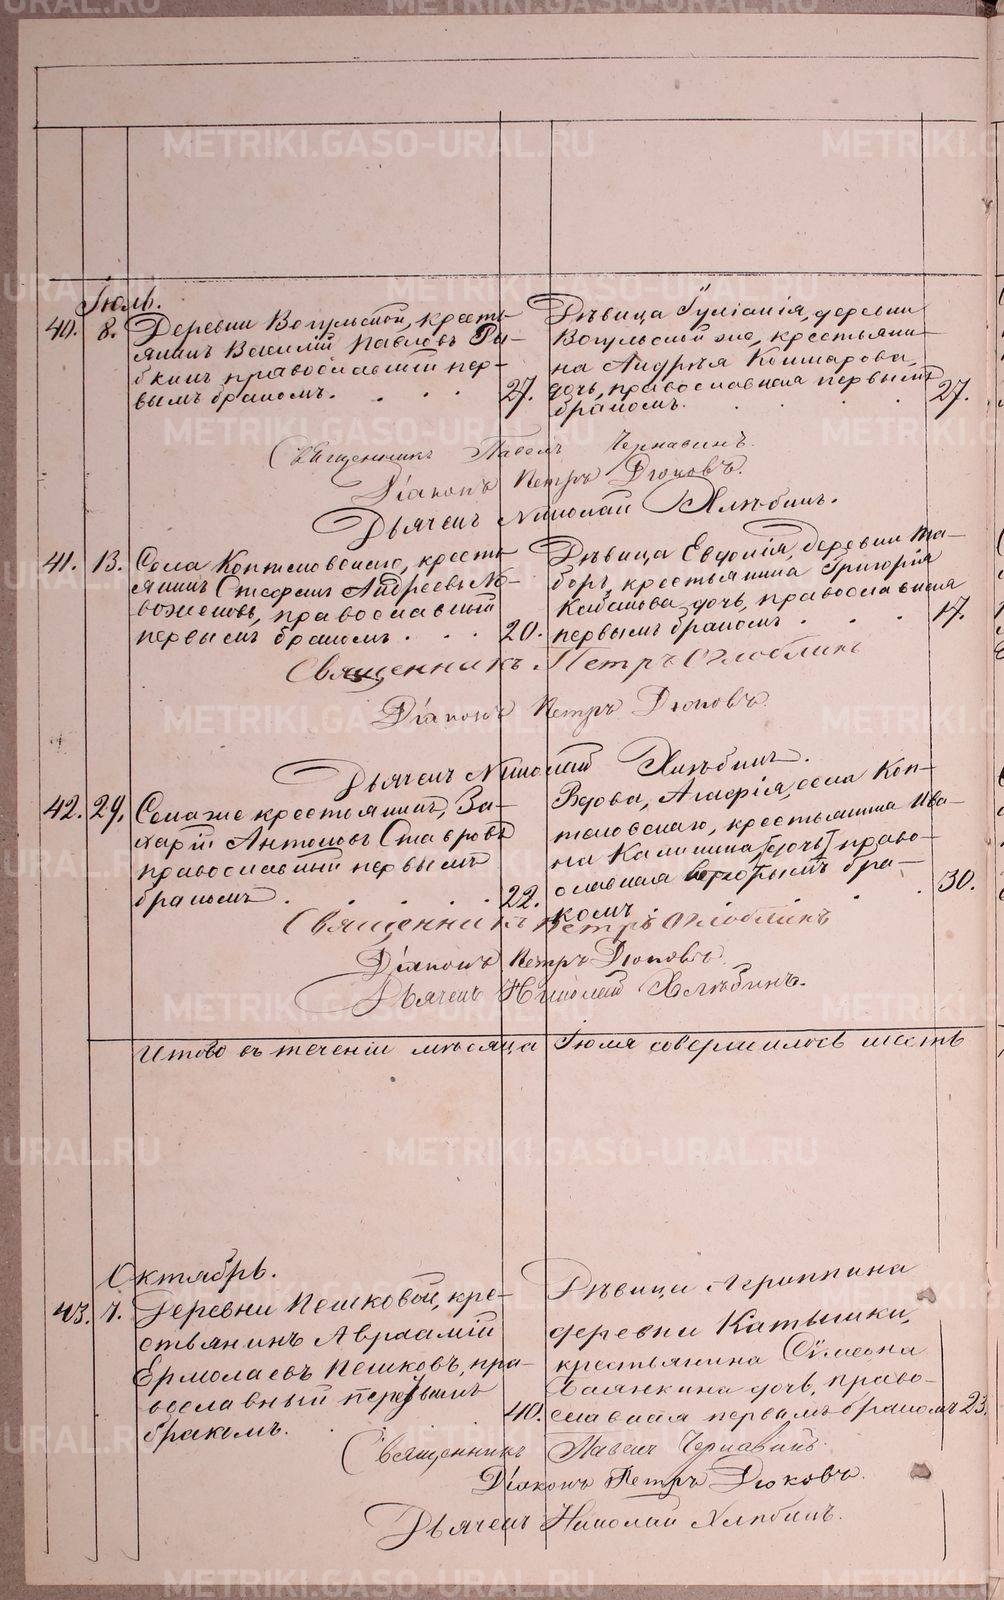 Іюль.
40. 8. Деревни Вогульской, кресть-
янинъ Василій Павловъ Ры-
бкинъ православный пер-
вымъ бракомъ. 27.
Дѣвица Іуліанія, деревни
Вогульской же, крестьяни-
на Андрея Кошкарова
дочь, православная первымъ 27.
бракомъ.
Священникъ Павелъ Чернавинъ.
Діаконъ Петръ Дюковъ.
Дьячекъ Николай Хлѣбинъ.
41. 13. Села Коптеловскаго, кресть-
янинъ Стефанъ Андреевъ
православный
первымъ бракомъ 20.
Дѣвица Евдокія, деревни Та-
боръ, крестьянина Григорія
Кабакова дочь, православная
первымъ бракомъ 17.
Священникъ Петръ Оглоблинъ
Діаконъ Петръ Дюковъ.
Дьячекъ Николай Хлѣбинъ.
42. 29. Села же крестьянинъ, За-
харій Антоновъ Ставровъ
православный первымъ
бракомъ 22.
Вдова, Агафія, села Коп-
теловскаго, крестьянина Ива-
на Калинина [дочь] право-
славная вторымъ бра- 30.
комъ.
Священникъ Петръ Оглоблинъ
Діаконъ Петръ Дюковъ
Дьячекъ Николай Хлѣбинъ.
Итого въ теченіи мѣсяца Іюля совершилось шесть
Октябрь.
43. Деревни Пешковой, кре-
стьянинъ Авраамій
Ермолаевъ Пешковъ, пра-
вославный первымъ
бракомъ. 40.
Дѣвица Агриппина
деревни Катышки,
крестьянина Сѵмеона
дочь, право-
славная первымъ бракомъ 23.
Священникъ Павелъ Чернавинъ.
Діаконъ Петръ Дюковъ.
Дьячекъ Николай Хлѣбинъ.
METRIKI.GASO-URAL.RU